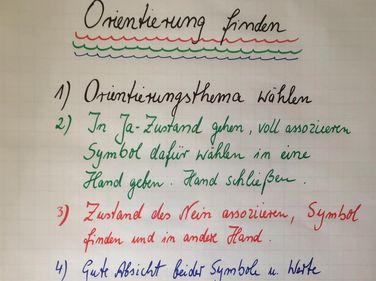 Orientierung finden
1) Orientierungsthema wählen
2) In Ja-Zustand gehen, voll assoziieren
Symbol dafür wählen in eine
Hand geben. Hand schließen.
3) Zustand des Nein assoziieren, Symbol
finden und in andere Hand.
4) Gute Absicht beider Symbole u. Werte